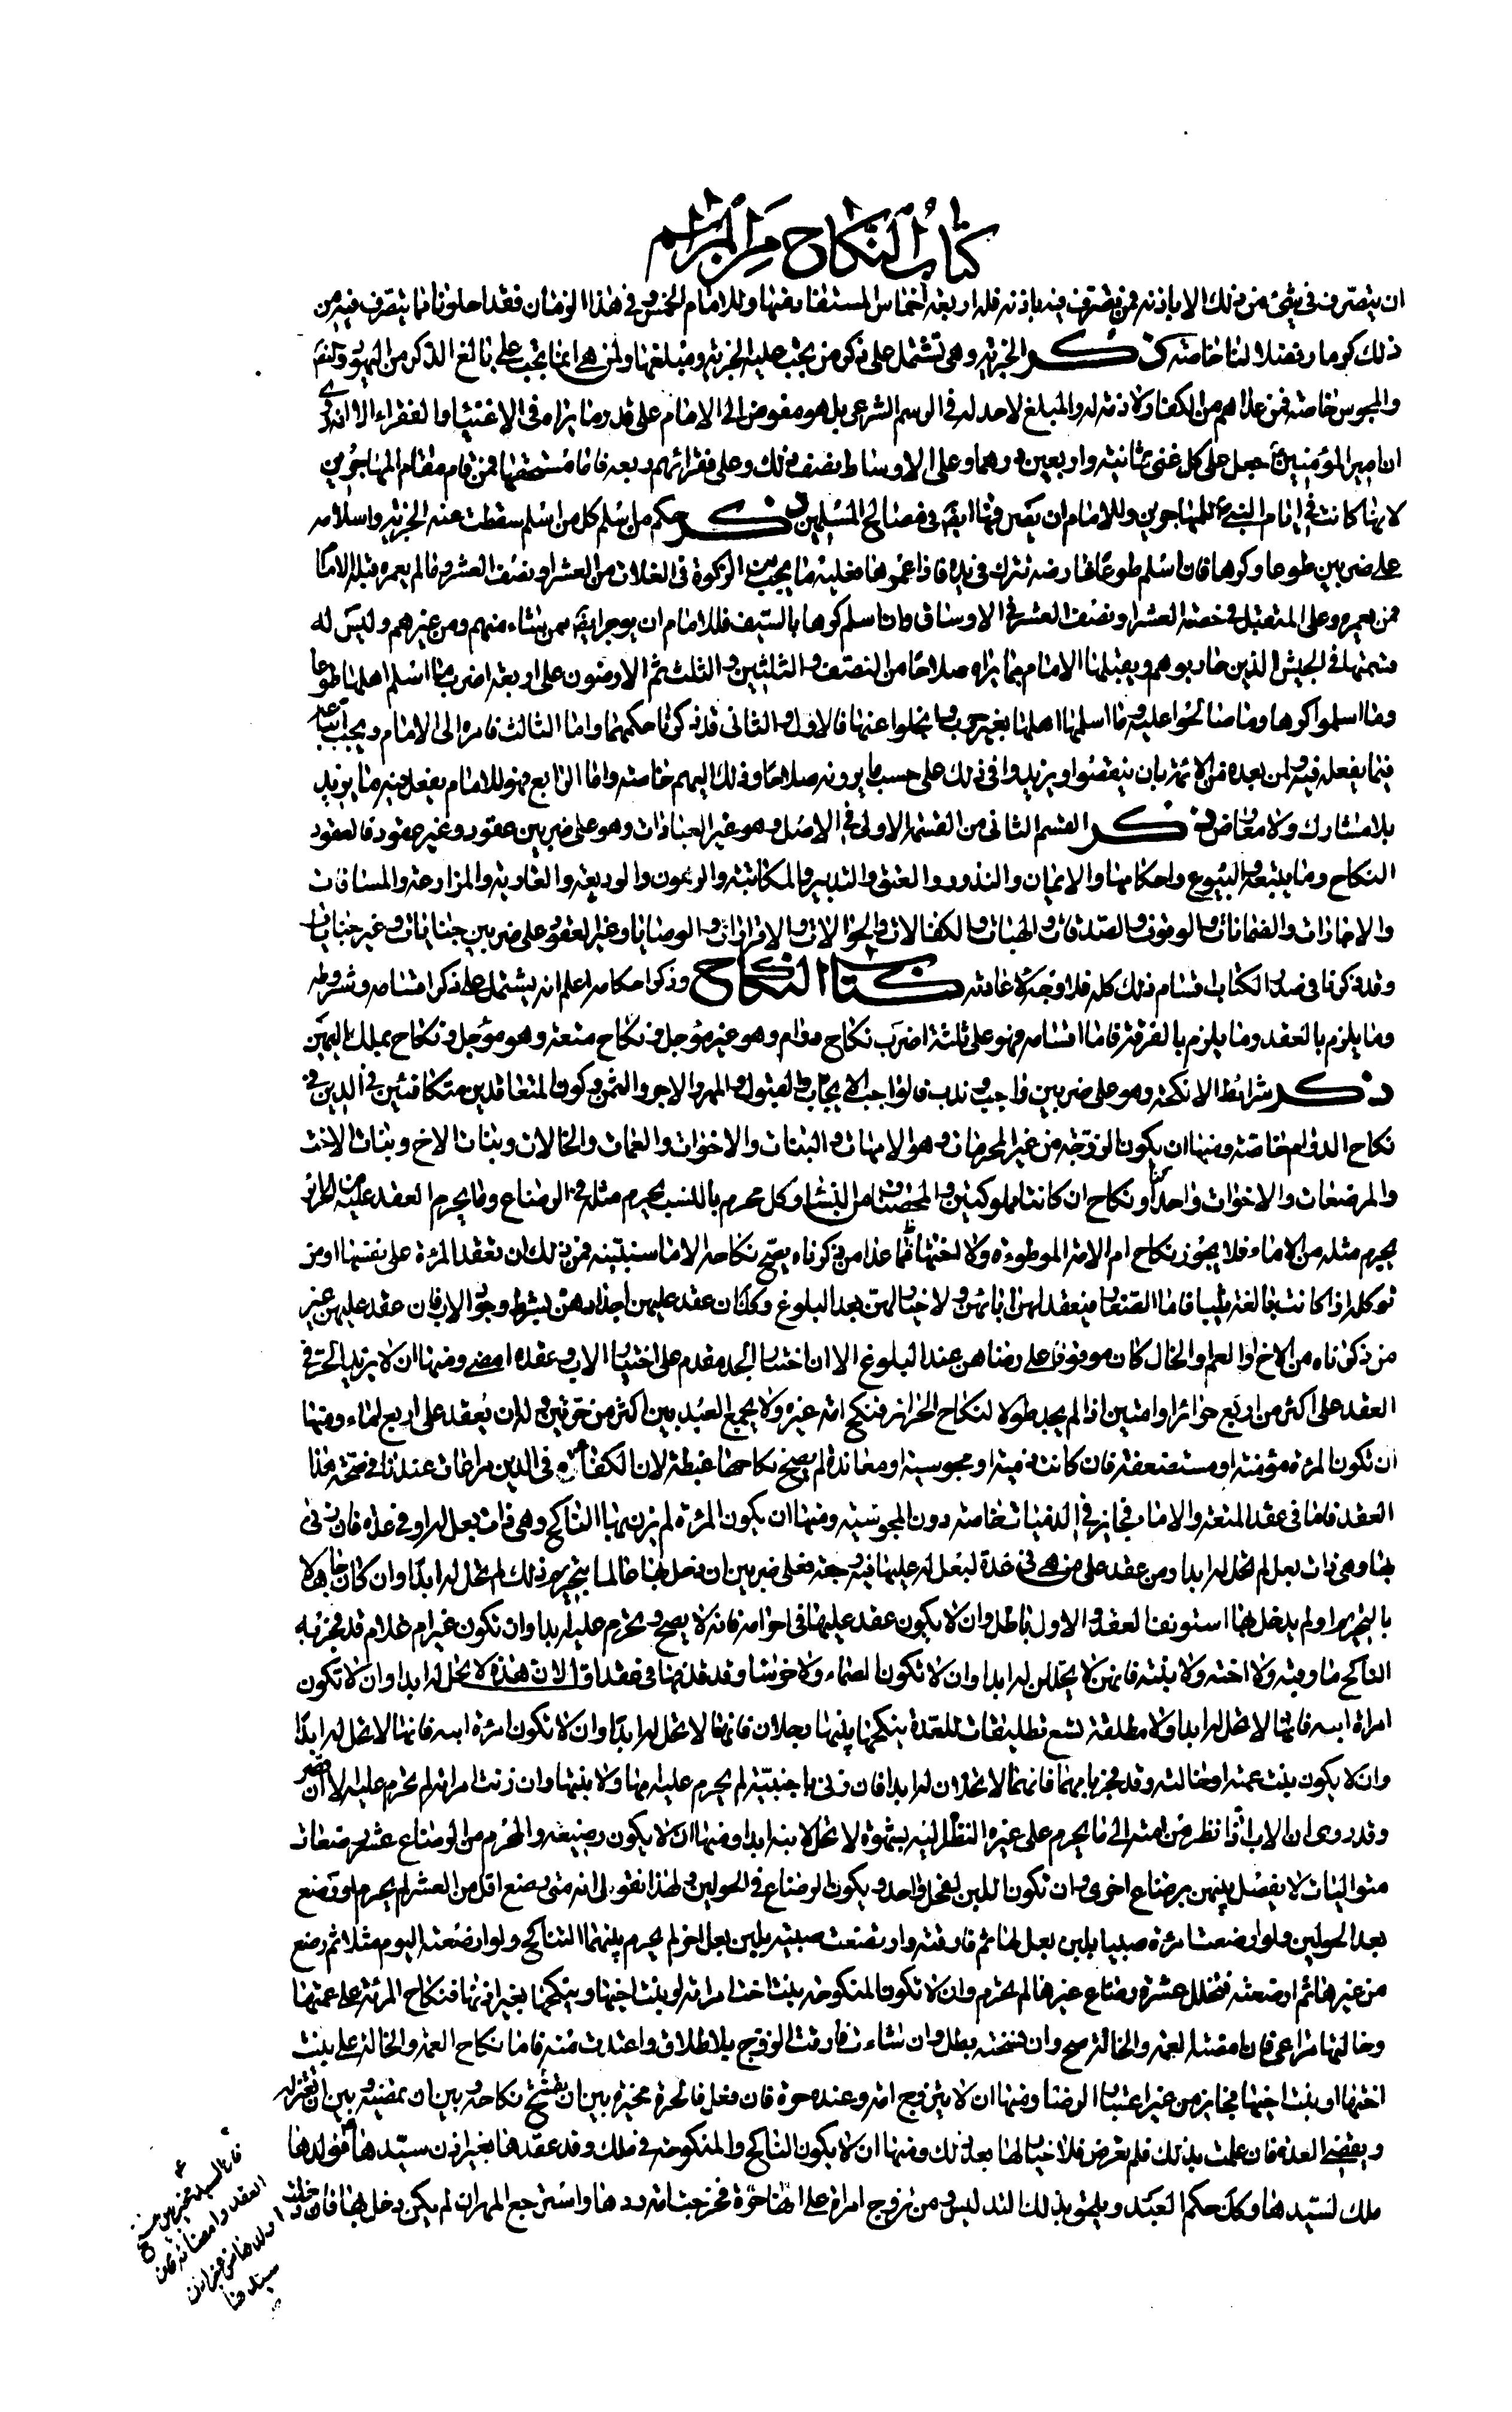 كتاب النكاح من المراسم
ان يتصرف فى شئ من ذلك الا باذنه فمن تصرف فيه باذنه فله اربعة اخماس المستفاد منها وللامام الخمس وفى هذا الزمان فقد احلونا فيما يتصرف فيه من
ذلك كرما وفضلا لنا خاصة ذكر الجزية وهى تشتمل على ذكر من يجب عليه الجزية ومبلغها ولمن هى انما يجب على بالغ الذكر من اليهود والنصا
والمجوس خاصة فمن عداهم من الكفار لا ذمة له والمبلغ لا حد له فى الرسم الشرعى بل هو مفوض الى الامام على قدر ما يراه فى الاغنياء والفقراء الا انه روى
ان امير المؤمنين ع جعل على كل غنى ثمانية واربعين درهما وعلى الاوساط نصف ذلك وعلى فقرائهم ربعه فاما مستحقها فمن قام مقام المهاجرين
لانها كانت فى ايام النبى ص للمهاجرين وللامام ان يصرفها ايضا فى مصالح المسلمين ذكر حكم من اسلم كل من اسلم سقطت عنه الجزية واسلامه
على ضربين طوعا وكرها فان اسلم طوعا فارضه تترك فى يده فاذا عمروها فعليه ما يجب من الزكوة فى الغلات من العشر او نصف العشر وما لم يعمره قبله الامام
ممن يعمره وعلى المتقبل فى حصته العشر او نصف العشر فى الاوساق وان اسلم كرها بالسيف فللامام ان يوجر ارضهم ممن يشاء منهم ومن غيرهم وليس له
قسمتها فى الجيش الذين حاربوهم ويقبلها الامام بما يراه صلاحا من النصف و الثلثين و الثلث ثم الارضون على اربعة اضرب ما اسلم اهلها طوعا
وما اسلموا كرها وما صالحوا عليه وما اسلمها اهلها بغير حرب وانجلوا عنها فالاول والثانى قد ذكرنا حكمهما واما الثالث فامره الى الامام ويجب اتباعه
فيما يفعله فيه ولمن بعده من الائمة بان ينقصوا ويزيدوا فى ذلك على حسب ما يرونه صلاحا وذلك اليهم خاصة واما الرابع فهو للامام يفعل فيه ما يريد
بلا مشارك ولا معارض ذكر القسم الثانى من القسمة الاولى فى الاصل وهو غير العبادات وهو على ضربين عقود وغير عقود فالعقود
النكاح وما يتبعه والبيوع واحكامها والايمان والنذور والعتق والتدبير والمكاتبة والرهون والوديعة والعارية والمزارعة والمساقات
والاجارات والضمانات والوقوف والصدقات والهبات والكفالات والحوالات والاقرارات والوصايا وغير العقود على ضربين جنايات وغير جنايات
وقد ذكرنا فى صدر الكتاب اقسام ذلك كله فلا وجه لاعادته كتاب النكاح وذكر احكامه اعلم انه يشتمل على ذكر اقسامه وشروطه
وما يلزم بالعقد وما يلزم بالفرقة فاما اقسامه فهو على ثلثة اضرب نكاح دوام وهو غير مؤجل ونكاح متعة وهو مؤجل ونكاح بملك اليمين
ذكر شرائط الانكحة وهو على ضربين واجب و ندب فالواجب الايجاب والقبول والمهر والاجر والثمن وكون المتعاقدين متكافئين فى الدين فى
نكاح الدوام خاصة ومنها ان يكون الزوجة من غير المحرمات وهو الامهات و البنات والاخوات والعمات والخالات وبنات الاخ وبنات الاخت
والمرضعات والاخوات واحدا ونكاح ان كانتا مملوكتين و المحصنات من النساء وكل محرم بالنسب يحرم مثله فى الرضاع وما يحرم العقد عليه من الحرائر
يحرم مثله من الاماء فلا يجوز نكاح ام الامة الموطوءة ولا اختها فما عدا من ذكرناه يصح نكاحه الا ما سنبينه فمن ذلك ان تعقد المرءة على نفسها او من
توكله اذا كانت بالغة ثيبا فاما الصغار فيعقد لهن اباؤهن ولا خيار لهن بعد البلوغ وكذا ان عقد عليهن اجدادهن بشرط وجود الاب فان عقد عليهن غير
من ذكرناه من الاخ او العم والخال كان موقوفا على رضاهن عند البلوغ الا ان اختيار الجد مقدم على اختيار الاب وعقده امضى ومنها ان لا يزيد الحر فى
العقد على اكثر من اربع حرائر او امتين اذا لم يجد طولا لنكاح الحرائر فنكح امة غيره ولا يجمع العبد بين اكثر من حرتين وله ان يعقد على اربع اماء ومنها
ان تكون المرءة مؤمنة او مستضعفة فان كانت ذمية او مجوسية او معاندة لم يصح نكاحها غبطة لان الكفاءة فى الدين مراعات عندنا فى صحة هذا
العقد فاما فى عقد المتعة والاماء فجائز فى الذميات خاصة دون المجوسية ومنها ان يكون المرءة لم يزن بها الناكح وهى ذات بعل له او فى عدة فان زنى
بها وهى ذات بعل لم تحل له ابدا ومن عقد على من هى فى عدة لبعل له عليها فيه رجعة فعلى ضربين ان دخل بها عالما بتحريم ذلك لم تحل له ابدا وان كان جاهلا
بالتحريم او لم يدخل بها استونف العقد والاول باطل وان لا يكون عقد عليها فى احرامه فانه لا يصح وتحرم عليه ابدا وان تكون غير ام غلام قد فجر به
الناكح فاوقبه ولا اخته ولا بنته فانهن لا يحللن له ابدا وان لا تكون صماء ولا خرساء وقد قذفها فى عقد اول لان هذه لا تحل له ابدا وان لا تكون
امراة ابيه فانها لا تحل له ابدا ولا مطلقة تسع تطليقات للعدة ينكحها بينها رجلان فانها لا تحل له ابدا وان لا تكون امرءة ابنه فانها لا تحل له ابدا
وان لا يكون بنت عمته او خالته وقد فجر بامهما فانهما لا تحلان له ابدا فان زنى باجنبية لم يحرم عليه امها ولا بنتها وان زنت امراته لم تحرم عليه الا ان تصر
وقد روى ان الاب اذا نظر من امته الى ما يحرم على غيره النظر اليه بشهوة لا تحل لابنه ابدا ومنها ان لا يكون رضيعه والمحرم من الرضاع عشر رضعات
متواليات لا يفصل بينهن برضاع اخرى وان تكون اللبن لفحل واحد و يكون الرضاع فى الحولين ولهذا نقول انه متى رضع اقل من العشر لم يحرم او رضع
بعد الحولين ولو ارضعت امرءة صبيا بلبن بعل لها ثم فارقته وارضعت صبية بلبن بعل اخر لم يحرم بينهما التناكح ولو ارضعته اليوم مثلا ثم رضع
من غيرها ثم ارضعته فتخلل عشرة رضاع غيرها لم تحرم وان لا تكون المنكوحة بنت اخت امراته او بنت اخيها وينكحها بغير اذنها فنكاح المرءة على عمتها
وخالتها مراعى فان امضته العمة والخالة صح وان فسخته بطل وان شاءت فارقت الزوج بلا طلاق واعتدت منه فاما نكاح العمة والخالة على بنت
اختها او بنت اخيها فجائز من غير اعتبار الرضا ومنها ان لا يتزوج امة وعنده حرة فان فعل فالحرة مخيرة بين ان يفسخ نكاحه وبين ان يمضيه وبين ان تعتزله
ويقضى العدة فان علمت بذلك فلم تعرض فلا خيار لها بعد ذلك ومنها ان لا يكون الناكح والمنكوحة فى ملك وقد عقدها بغير اذن سيدها فولدها
ملك لسيدها وكذا حكم العبد ويلحق بذلك التدليس ومن تزوج امراة على انها حرة فخرجت امة ردها واسترجع المهر ان لم يكن دخل بها فان
العقد وامضائه فان
اولدها من غير اذن
سيدها